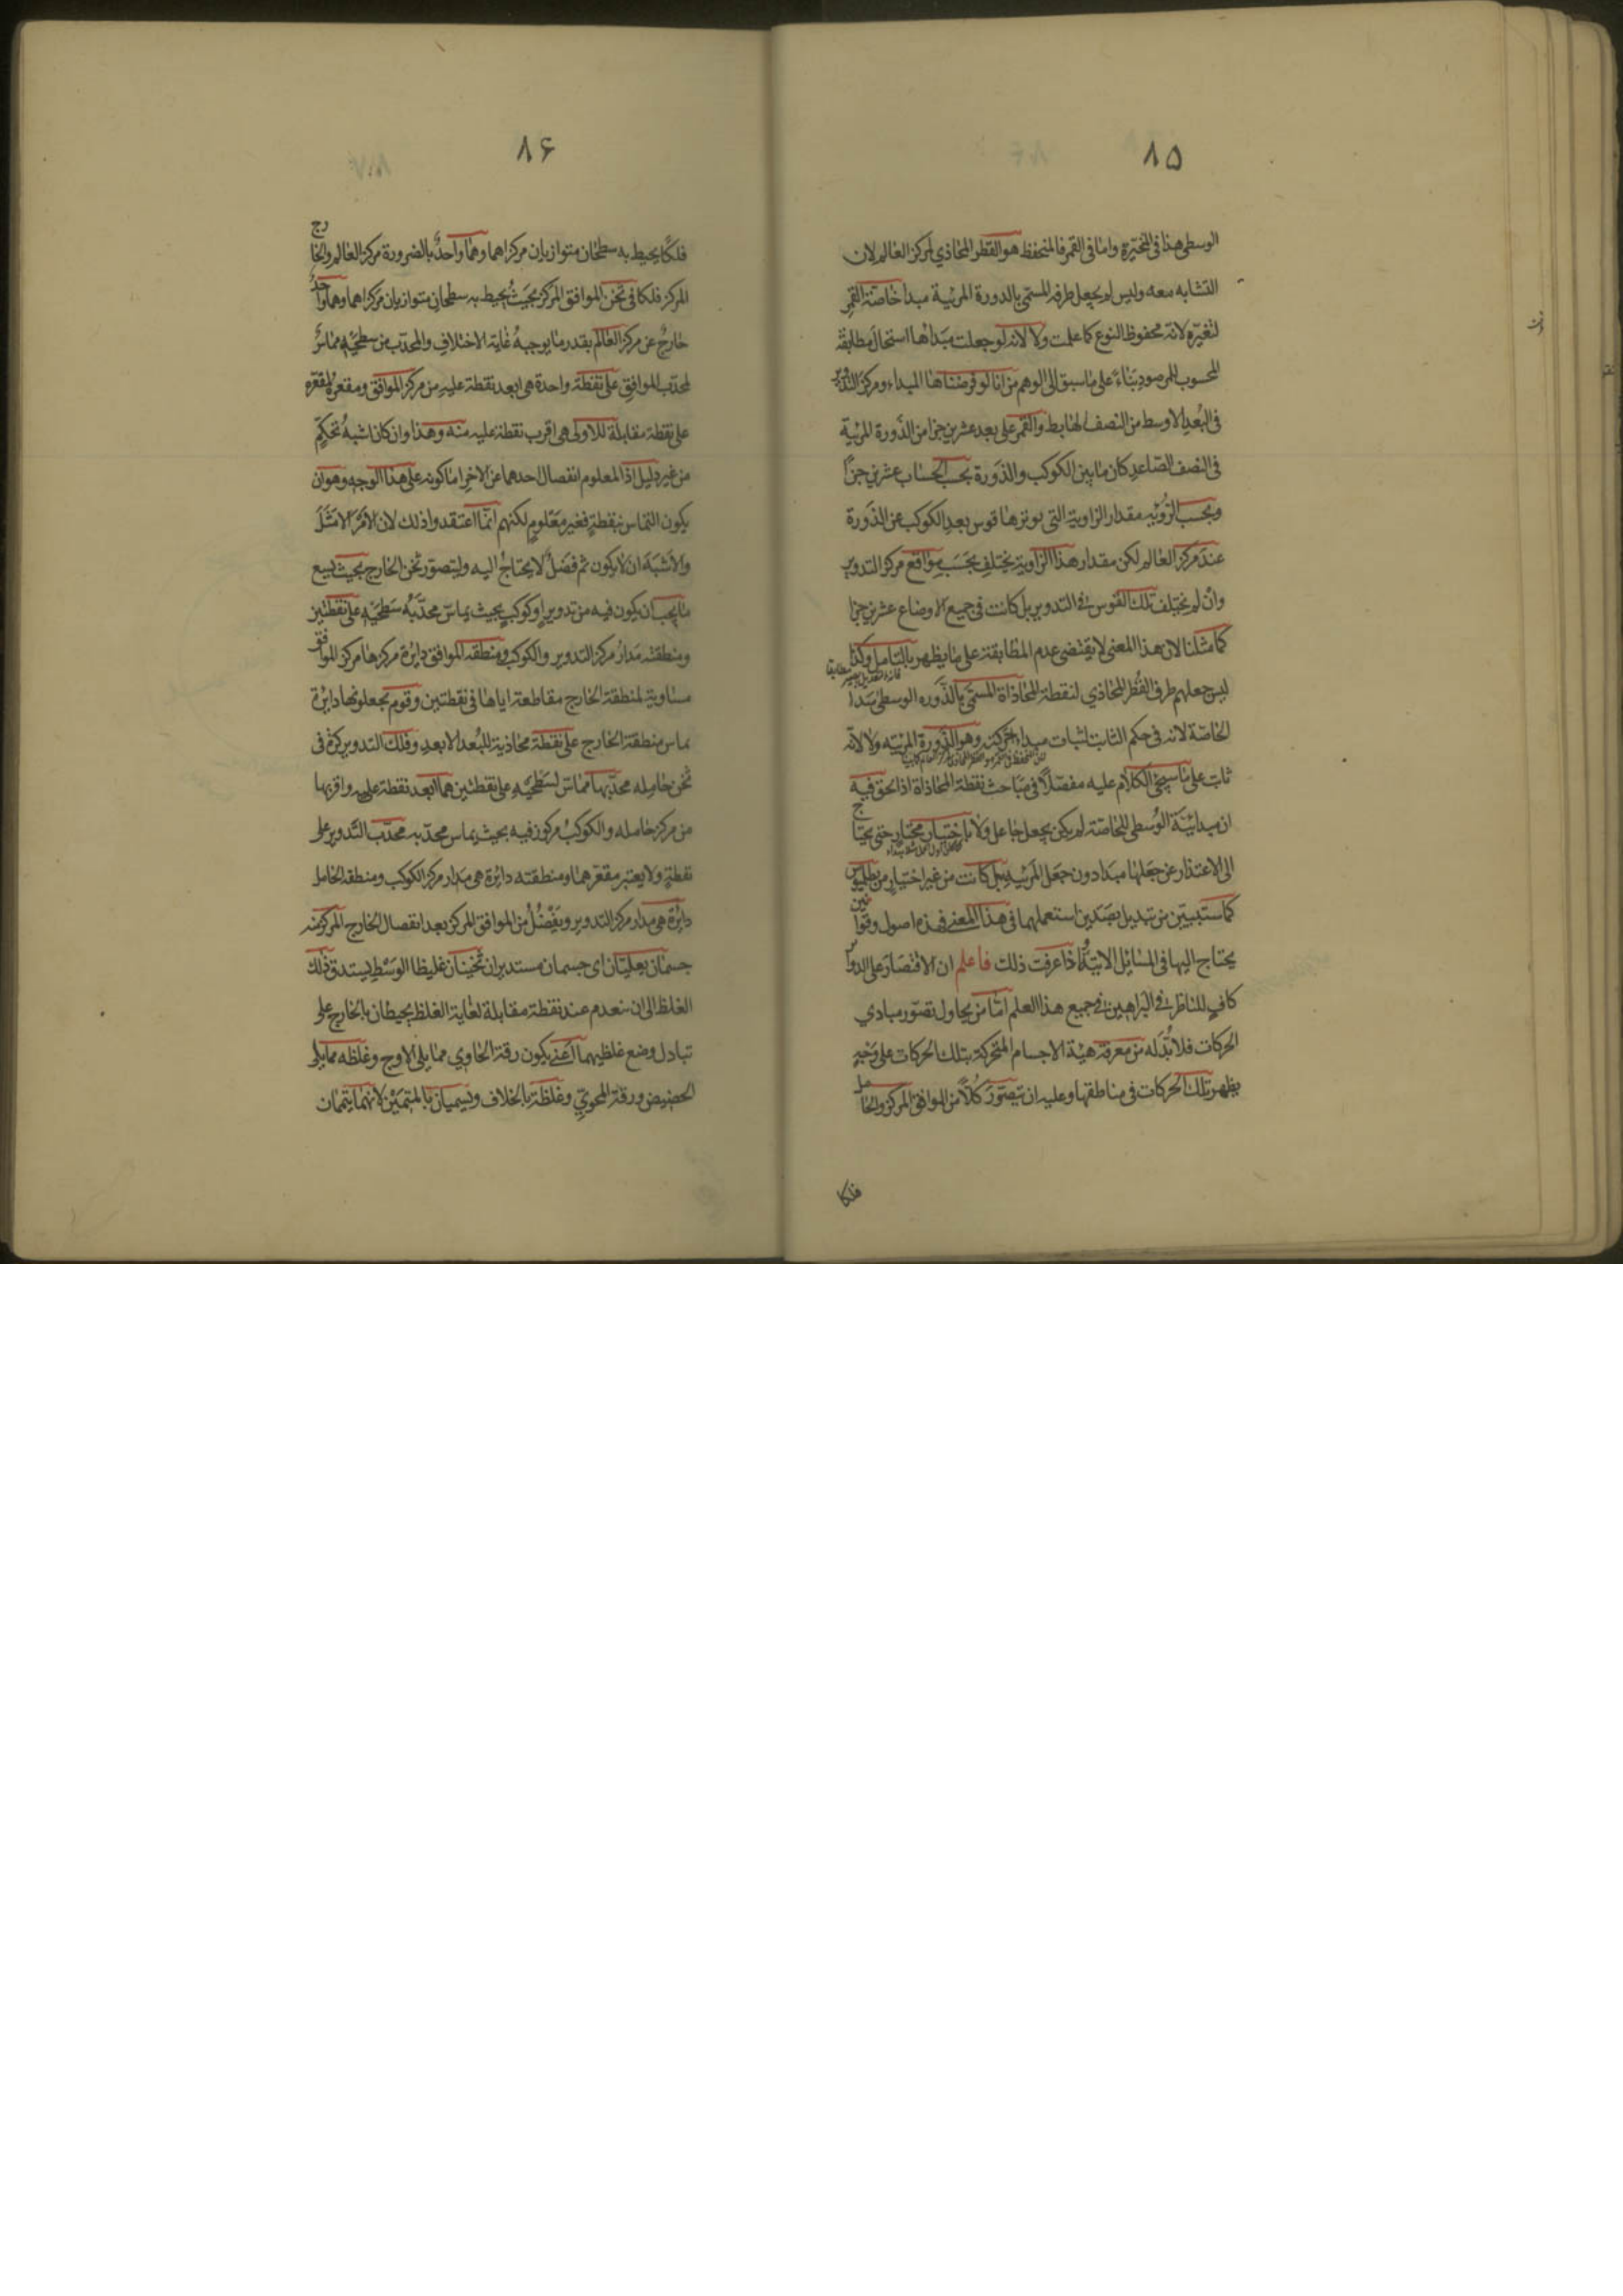 ٨٥
الوسطى هذا فى المتحيّرة واما فى القمر فالمنحفظ هو القطر المحاذي لمركز العالم لان
التشابه معه وليس لم يجعل طرفه المسمّى بالذروة المرئية مبدا خاصّة القمر
لتغيّره لانه محفوظ النوع كما علمت ولا لانه لو جعلت مبدأها استحال مطابقة
المحسوب للمرصود بناءً على ما سبق الى الوهم من انا لو فرضناها المبداء ومركز التدوير
فى البُعد الاوسط من النصف الهابط والقمر على بعد عشرين جزا من الذروة المرئية
فى النصف الصّاعد كان ما بين الكوكب والذروة بحسب الحساب عشرين جزأً
وبحسب الرّؤية مقدار الزاوية التى يوترها قوس بعد الكوكب عن الذروة
عند مركز العالم لكن مقدار هذا الزاوية يختلف بحَسَب مواقع مركز التدوير
وانْ لم يختلف تلك القوس فى التدوير بل كانت فى جميع الاوضاع عشرين جزا
كما مثلنا لان هذا المعنى لا يقتضى عدم المطابقة على ما يظهر بالتامل وكذا
ليس جعلهم طرف القُطر المحاذي لنقطة المحاذاة المسمّى بالذّروه الوسطى مَبدا
الخاصّة لانه فى حكم الثابت لثبات مبداء حركته وهو الذّروة المرئيّه ولا لانّه
ثابت على ما سيجئ الكلام عليه مفصّلاً فى مَباحث نقطة المحاذاة اذ الحق فيه
ان مبدائيّة الوُسطى للخاصّة لم يكن بجعل جاعل ولا باختيار مختار حتى يحتاج
الى الاعتذار عن جَعلها مبَدا دون جَعل المرئيه بل كانت من غير اختيارٍ من بطلميوس
كما ستتبيّن من تبديل بصَدَين استعملهما فى هذا المعنى فهذه اصول وقوانين
يحتاج اليها فى المسائل الاتيّة واذا عرفت ذلك فاعلم ان الاقتصارَ على الدوائر
كافٍ للناظر فى البراهين فى جميع هذا العلم امّا من يحاول تصوّر مبادي
الحركات فلا بُدّ له من معرفة هيئة الاجسام المتحركة بتلك الحركات على وجْهٍ
يظهر تلك الحركات فى مناطقها وعليه ان يتصوّرَ كُلاًّ من الموافق المركز والحامل
فلكا
٨۶
فلكًا يحيط به سطحان متوازيان مركزاهما وهما واحدٌ بالضرورة مركز العالم والخارج
المركز فلكا فى ثخن الموافق المركز بحيثُ يحيط به سطحان متوازيان مركزاهما وهما واحدٌ
خارجٌ عن مركز العالم بقدر ما يوجبهُ غاية الاختلاف والمحدّب من سطحَيْه مماسٌّ
لمحدّب الموافق على نقطة واحدة هى ابعد نقطة عليه من مركز الموافق ومقعره لمقعّره
على نقطة مقابلة للاولى هى اقرب نقطة عليه منه وهذا وان كان اشبهُ تحكّمٍ
من غير دليل اذ المعلوم انفصال احدهما عن الاخر اما كونه على هذا الوجه وهو ان
يكون التماس بنقطةٍ فغير معَلومٍ لكنهم انّما اعتقدوا ذلك لان الامْرَ الامثَلَ
والاشبَه ان لا يكون ثم فضَلٌ لا يحتاجُ اليه وليتصوّر ثخن الخارج بحيث يسع
ما يجب ان يكون فيه من تدويرٍ او كوكبٍ بحيث يماسّ محدّبهُ سَطحَيْه على نقطتين
ومنطقته مَدارُ مركز التدوير والكوكب ومنطقه الموافق دايرة مركزها مركز الموافق
مساوية لمنطقة الخارج مقاطعة اياها فى نقطتين وقوم يجعلونها دايرة
تماس منطقة الخارج على نقطة محاذية للبُعد الابعد وفلك التدوير كرة فى
ثخن حامله محدّبها مماسّ لسَطحَيْه على نقطتين هما ابعد نقطة عليه واقربها
من مركز حامله والكوكبُ مركوز فيه بحيث يماس محدّبه محدّب التّدوير على
نقطةٍ ولا يعتبر مقعّرهما ومنطقته دائرة هى مدار مركز الكوكب ومنطقة الحامل
دايْرة هى مدار مركز التدوير ويَفْضُلُ من الموافق المركز بعد انفصال الخارج المركز منه
جسمان تعليميّان اى جسمان مستديران ثخينان غليظا الوَسْطِ يستدق ذلك
الغلظ الى ان ينعدم عند نقطة مقابلة لغاية الغلظ يحيطان بالخارج على
تبادل وضع غلظيهما اعنى يكون رقة الحاوي مما يلى الاوج وغلظه مما يلى
الحضيض ورقة المحويّ وغلظَه بالخلاف ويسميان بالمتممَيْن لانهما يتمّمان